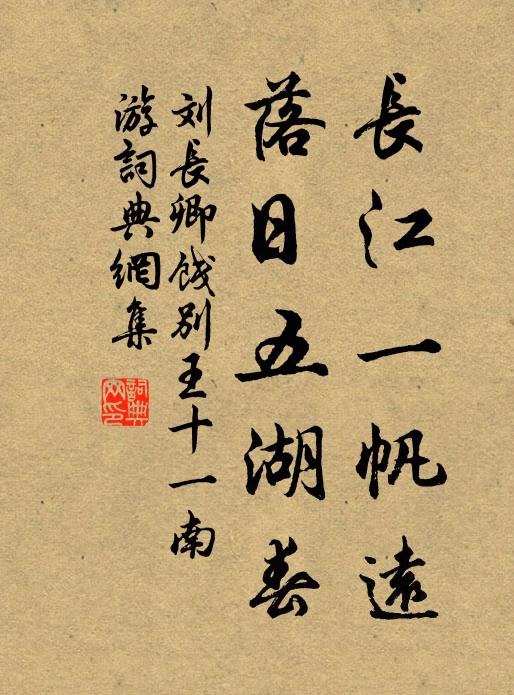 長江一帆遠
落日五湖春
刘長卿餞别王十一南
游詞典網集
詞典網印